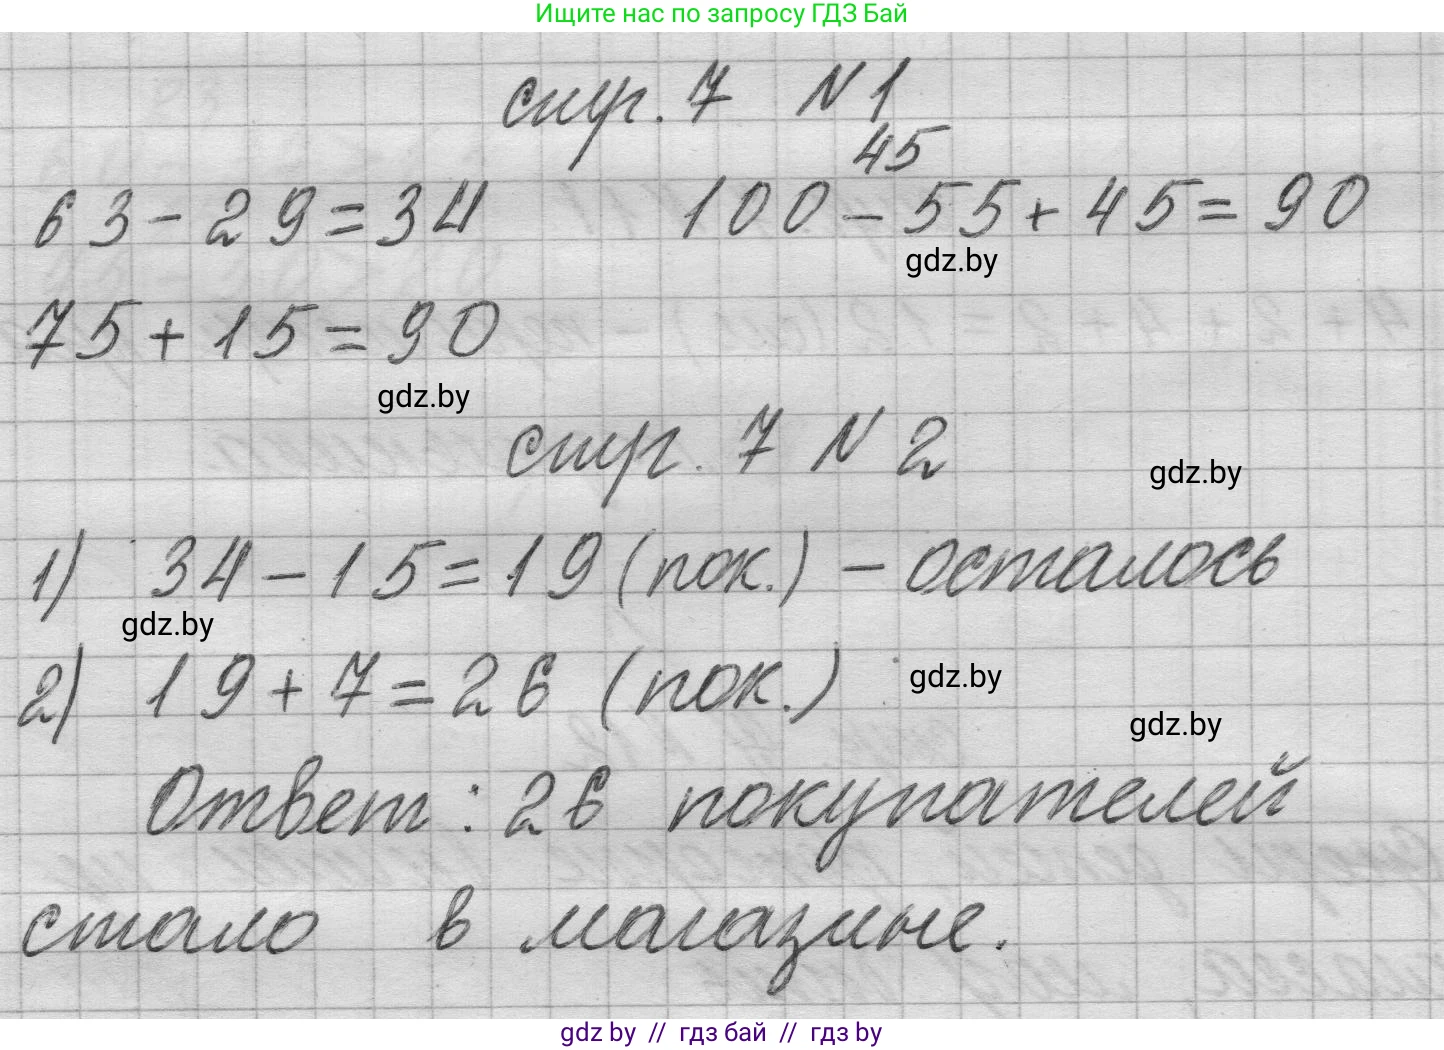 Ищите нас по запросу ГДЗ Бай
стр. 7 N 1
45
63 - 29 = 34 100 - 55 + 45 = 90
gdz.by
75 + 15 = 90
gdz.by
стр. 7 N 2
gdz.by
1) 34 - 15 = 19 (пок.) - осталось
gdz.by
2) 19 + 7 = 26 (пок.)
gdz.by
gdz.by
Ответ: 26 покупателей
стало в магазине.
gdz by // гдз бай // гдз by